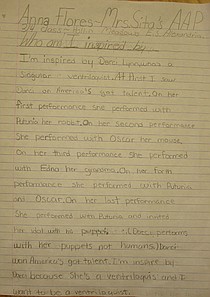 Anna Flores - Mrs. Sita's AAP
Who am I inspired by
I'm inspired by Darci Lynne a
singular ventriloquist. At first I saw
Darci on America's got talent. On her
first performance she performed with
her rabbit. On her second performance
she performed with Oscar her mouse.
On her third performance she performed
with Edna her. On her forth
performance she performed with Petunia
and Oscar. On her last performance
She performed with Petunia and
her idol with his puppets. Darci performs
with her puppets not humans. Darci
won America's got talent. I'm inspire by
Darci because she's a ventriloquist and I
want to be a ventriloquist.